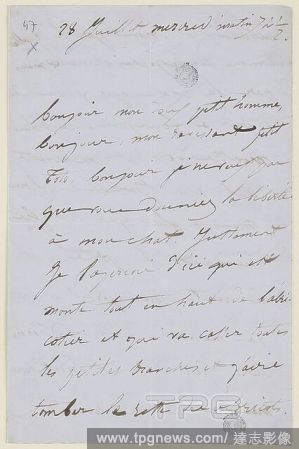 47
X
28 Juillet mercredi matin 7h ½
Bonjour mon petit homme,
bonjour, mon ravissant petit
Toto, bonjour je ne veux que
que vous donniez la liberté
à mon chat. Justement
je l'aperçois d'ici qui est
monté tout en haut de l'abri
cotier et qui va casser toutes
les petites branches et faire
tomber le reste des abricots.
TPG
www.tpgnews.com/ 達志影像